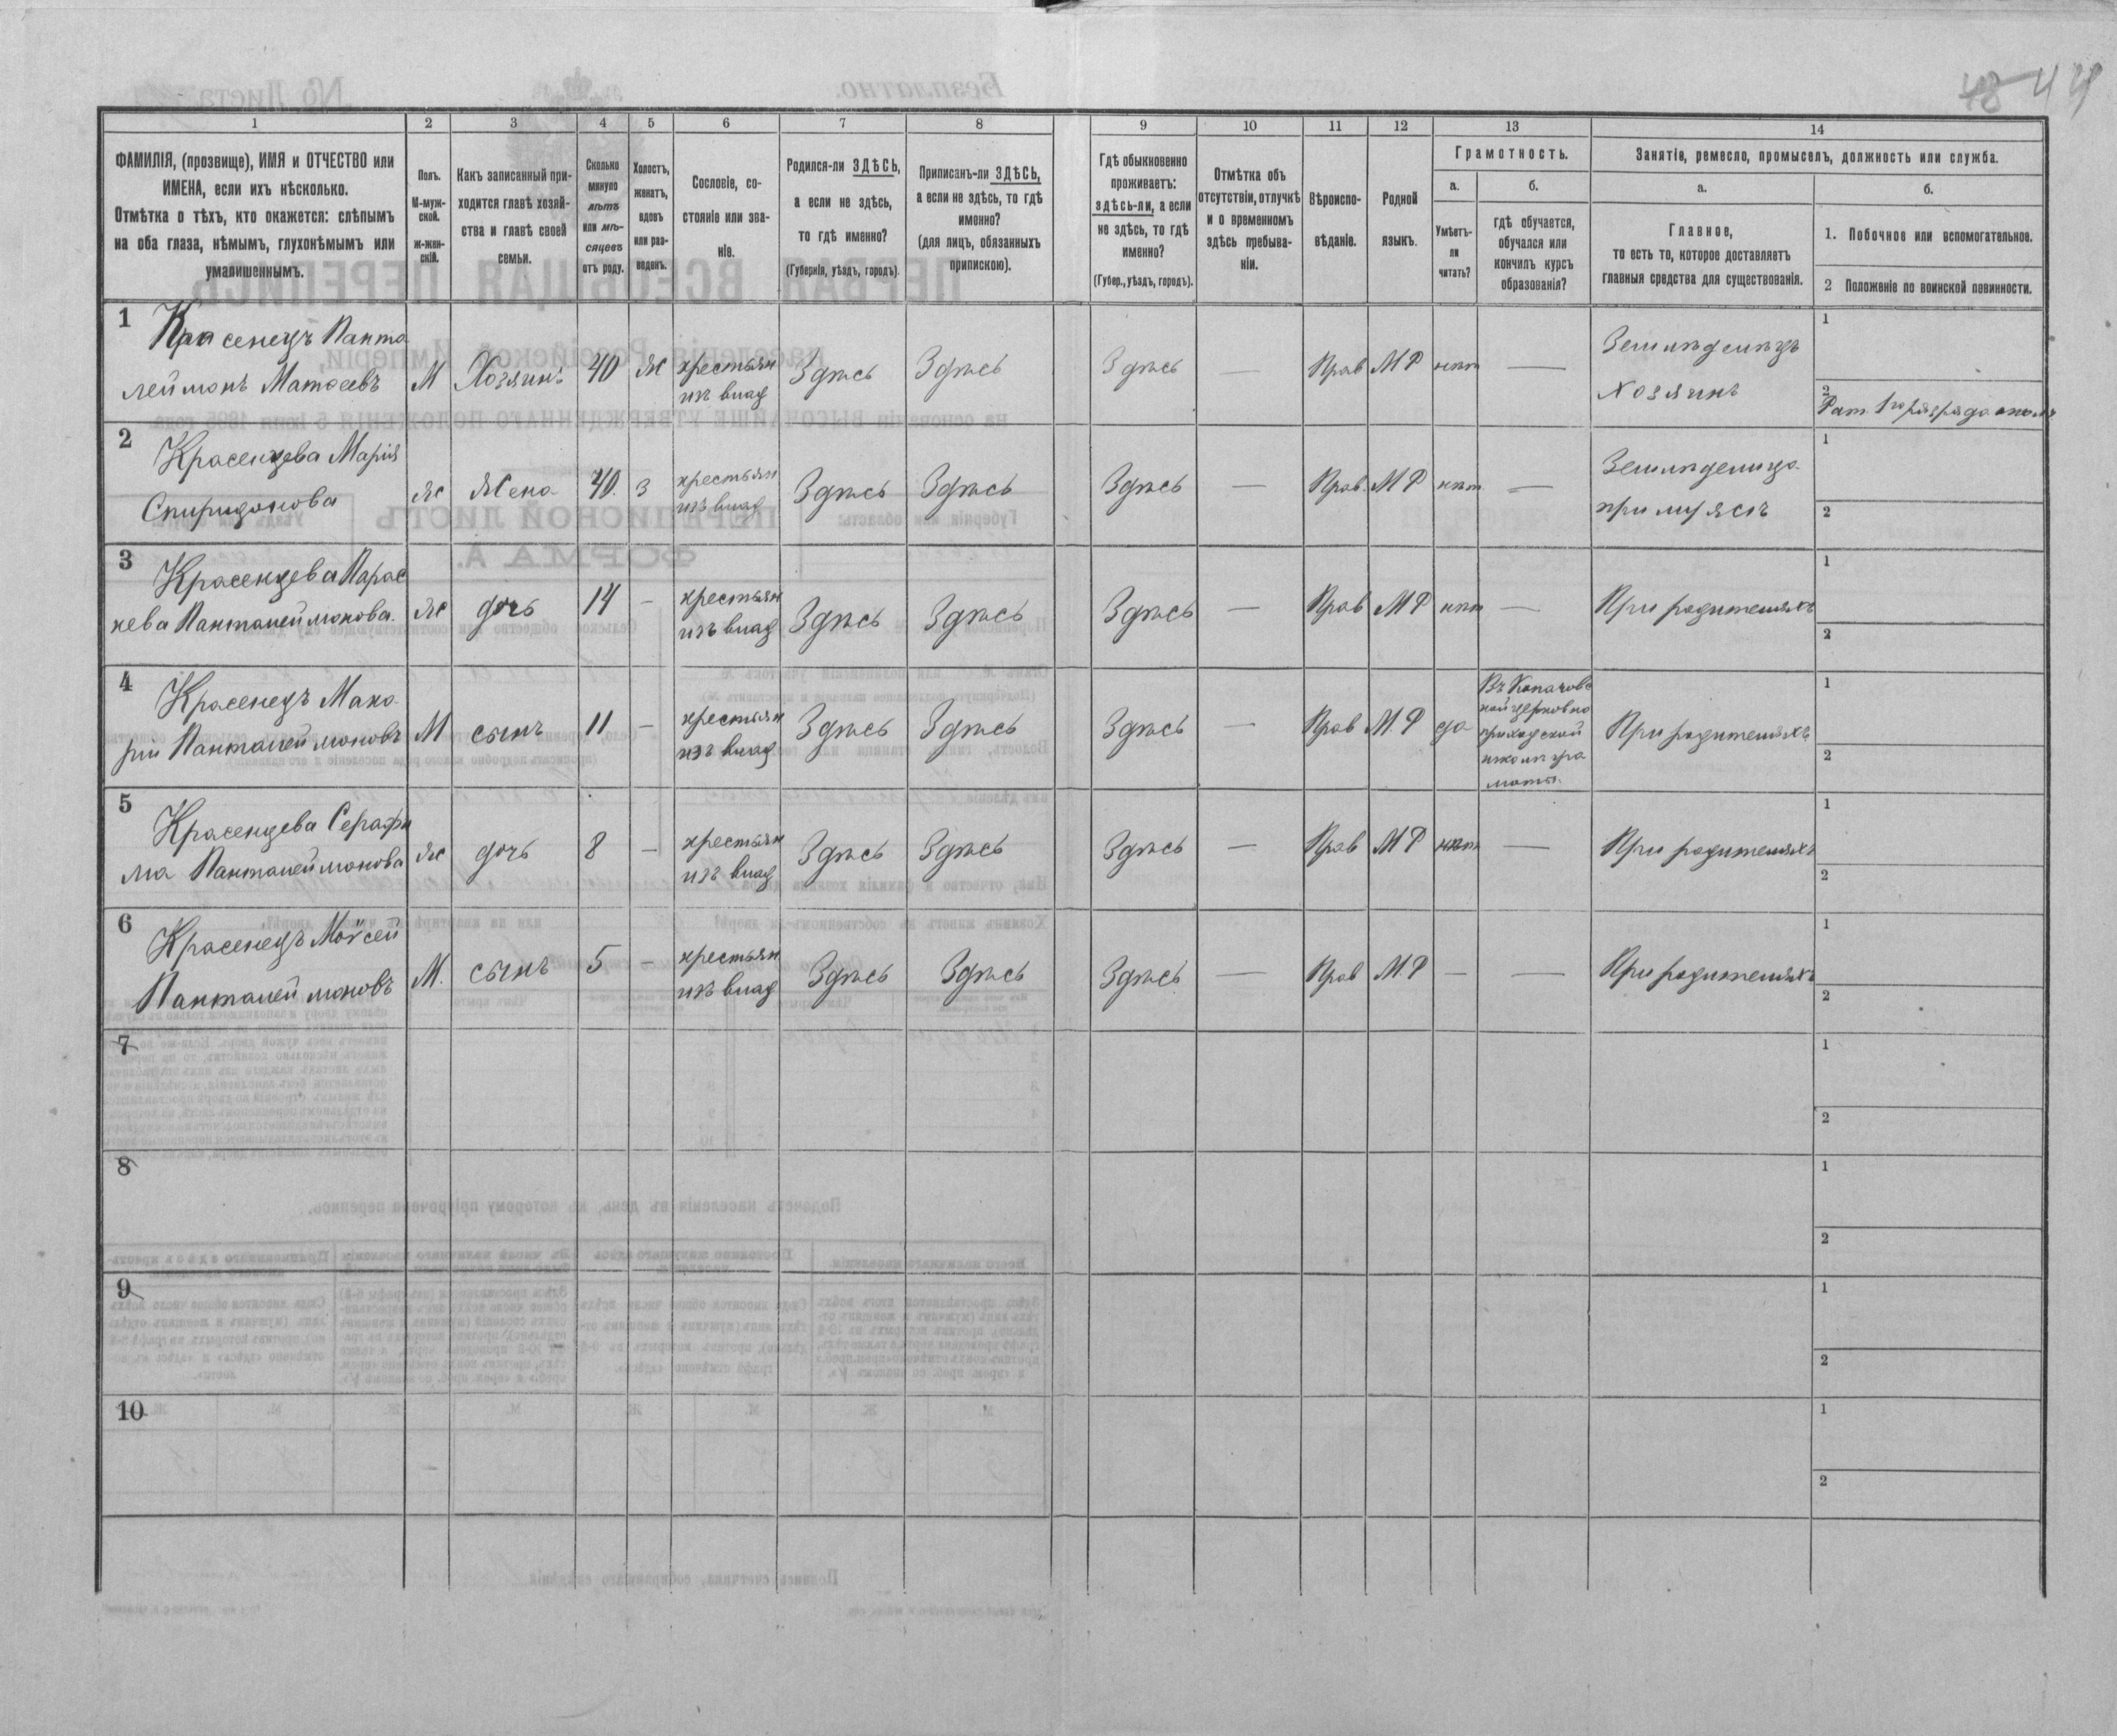 48 44
1 2 3 4 5 6 7 8 9 10 11 12 13 14
ФАМИЛІЯ, (прозвище), ИМЯ и ОТЧЕСТВО или
ИМЕНА, если ихъ нѣсколько.
Отмѣтка о тѣхъ, кто окажется: слѣпымъ
на оба глаза, нѣмымъ, глухонѣмымъ или
умалишеннымъ.
Полъ.
М-муж-
ской.
ж-жен-
скій.
Какъ записанный при-
ходится главѣ хозяй-
ства и главѣ своей
семьи.
Сколько
минуло
лѣтъ
или мѣ-
сяцевъ
отъ роду.
Холостъ,
женатъ,
вдовъ
или раз-
веденъ.
Сословіе, со-
стояніе или зва-
ніе.
Родился-ли ЗДѢСЬ,
а если не здѣсь,
то гдѣ именно?
(Губернія, уѣздъ, городъ).
Приписанъ-ли ЗДѢСЬ,
а если не здѣсь, то гдѣ
именно?
(для лицъ, обязанныхъ
припискою).
Гдѣ обыкновенно
проживаетъ:
здѣсь-ли, а если
не здѣсь, то гдѣ
именно?
(Губер., уѣздъ, городъ).
Отмѣтка объ
отсутствіи, отлучкѣ
и о временномъ
здѣсь пребыва-
ніи.
Вѣроиспо-
вѣданіе.
Родной
языкъ.
Грамотность.
а.
Умѣетъ-
ли
читать?
б.
гдѣ обучается,
обучался или
кончилъ курсъ
образованія?
Занятіе, ремесло, промыселъ, должность или служба.
а.
Главное,
то есть то, которое доставляетъ
главныя средства для существованія.
б.
1. Побочное или вспомогательное.
2 Положеніе по воинской повинности.
1 Красенецъ Панта
леймонъ Матѳеевъ М Хозяинъ 40 Ж крестьян
изъ влад Здѣсь Здѣсь Здѣсь — Прав МР нѣт — Землѣделецъ
хозяинъ 1
2 Рат. 1го разряда
2 Красенцева Марія
Спиридонова Ж Жена 40. З крестьян
изъ влад Здѣсь Здѣсь Здѣсь — Прав. МР нѣт — Землѣделица
при мужѣ 1
2
3 Красенцева Парас
кева Пантелеймонова. Ж дочь 14 — крестьян
изъ влад Здѣсь Здѣсь Здѣсь — Прав МР нѣт — При родителяхъ 1
2
4 Красенецъ Мака
рій Пантелеймоновъ М сынъ 11 — крестьян
изъ влад Здѣсь Здѣсь Здѣсь — Прав М.Р да Въ Копачовс
кой церковно
приходской
школѣ гра
моты. При родителяхъ 1
2
5 Красенцева Серафи
ма Пантелеймонова Ж дочь 8 — крестьян
изъ влад Здѣсь Здѣсь Здѣсь — Прав МР нѣт — При родителяхъ 1
2
6 Красенецъ Мойсей
Пантелеймоновъ М. сынъ 5 — крестьян
изъ влад Здѣсь Здѣсь Здѣсь — Прав М.Р — — При родителяхъ 1
2
7 1
2
8 1
2
9 1
2
10 1
2